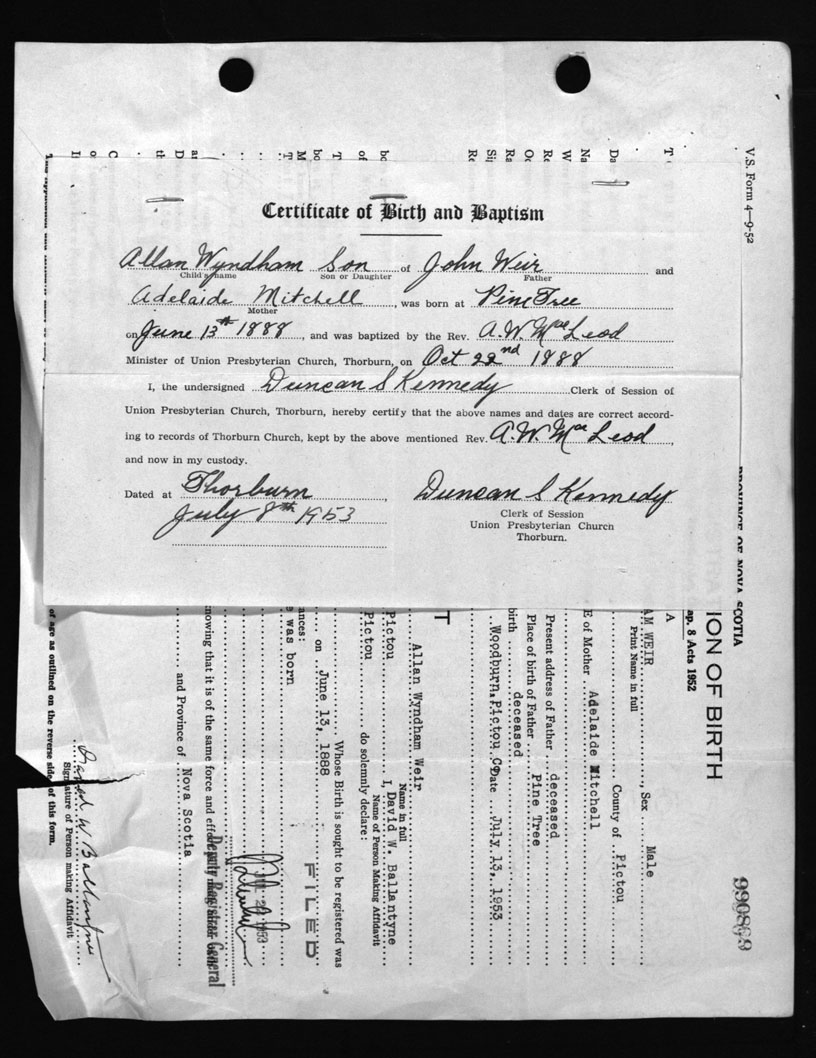 Certificate of Birth and Baptism
Allan Wyndham Son of John Weir and
Child's name Son or Daughter Father
Adelaide Mitchell, was born at Pine Tree
Mother
on June 13th 1888, and was baptized by the Rev. A. W. MacLeod
Minister of Union Presbyterian Church, Thorburn, on Oct 22nd 1888
I, the undersigned Duncan S Kennedy Clerk of Session of
Union Presbyterian Church, Thorburn, hereby certify that the above names and dates are correct accord-
ing to records of Thorburn Church, kept by the above mentioned Rev. A. W. MacLeod,
and now in my custody.
Dated at Thorburn,
July 8th 1953
Duncan S Kennedy
Clerk of Session
Union Presbyterian Church
Thorburn.
V.S. Form 4—9-52
PROVINCE OF NOVA SCOTIA
ION OF BIRTH
ap. 8 Acts 1952
990869
A
AM WEIR, Sex Male
Print Name in full
County of Pictou
E of Mother Adelaide Mitchell
Present address of Father deceased
Place of birth of Father Pine Tree
birth deceased
Woodburn, Pictou Co Date July 13, 1953
T
Allan Wyndham Weir
Name in full
Pictou I, David W. Ballantyne
Name of Person Making Affidavit
Pictou do solemnly declare:
Whose Birth is sought to be registered was
on June 13, 1888
ances:
e was born
FILED
1953
and Province of Nova Scotia
nowing that it is of the same force and effect
Deputy Registrar General
of age as outlined on the reverse side of this form.
David W Ballantyne
Signature of Person making Affidavit